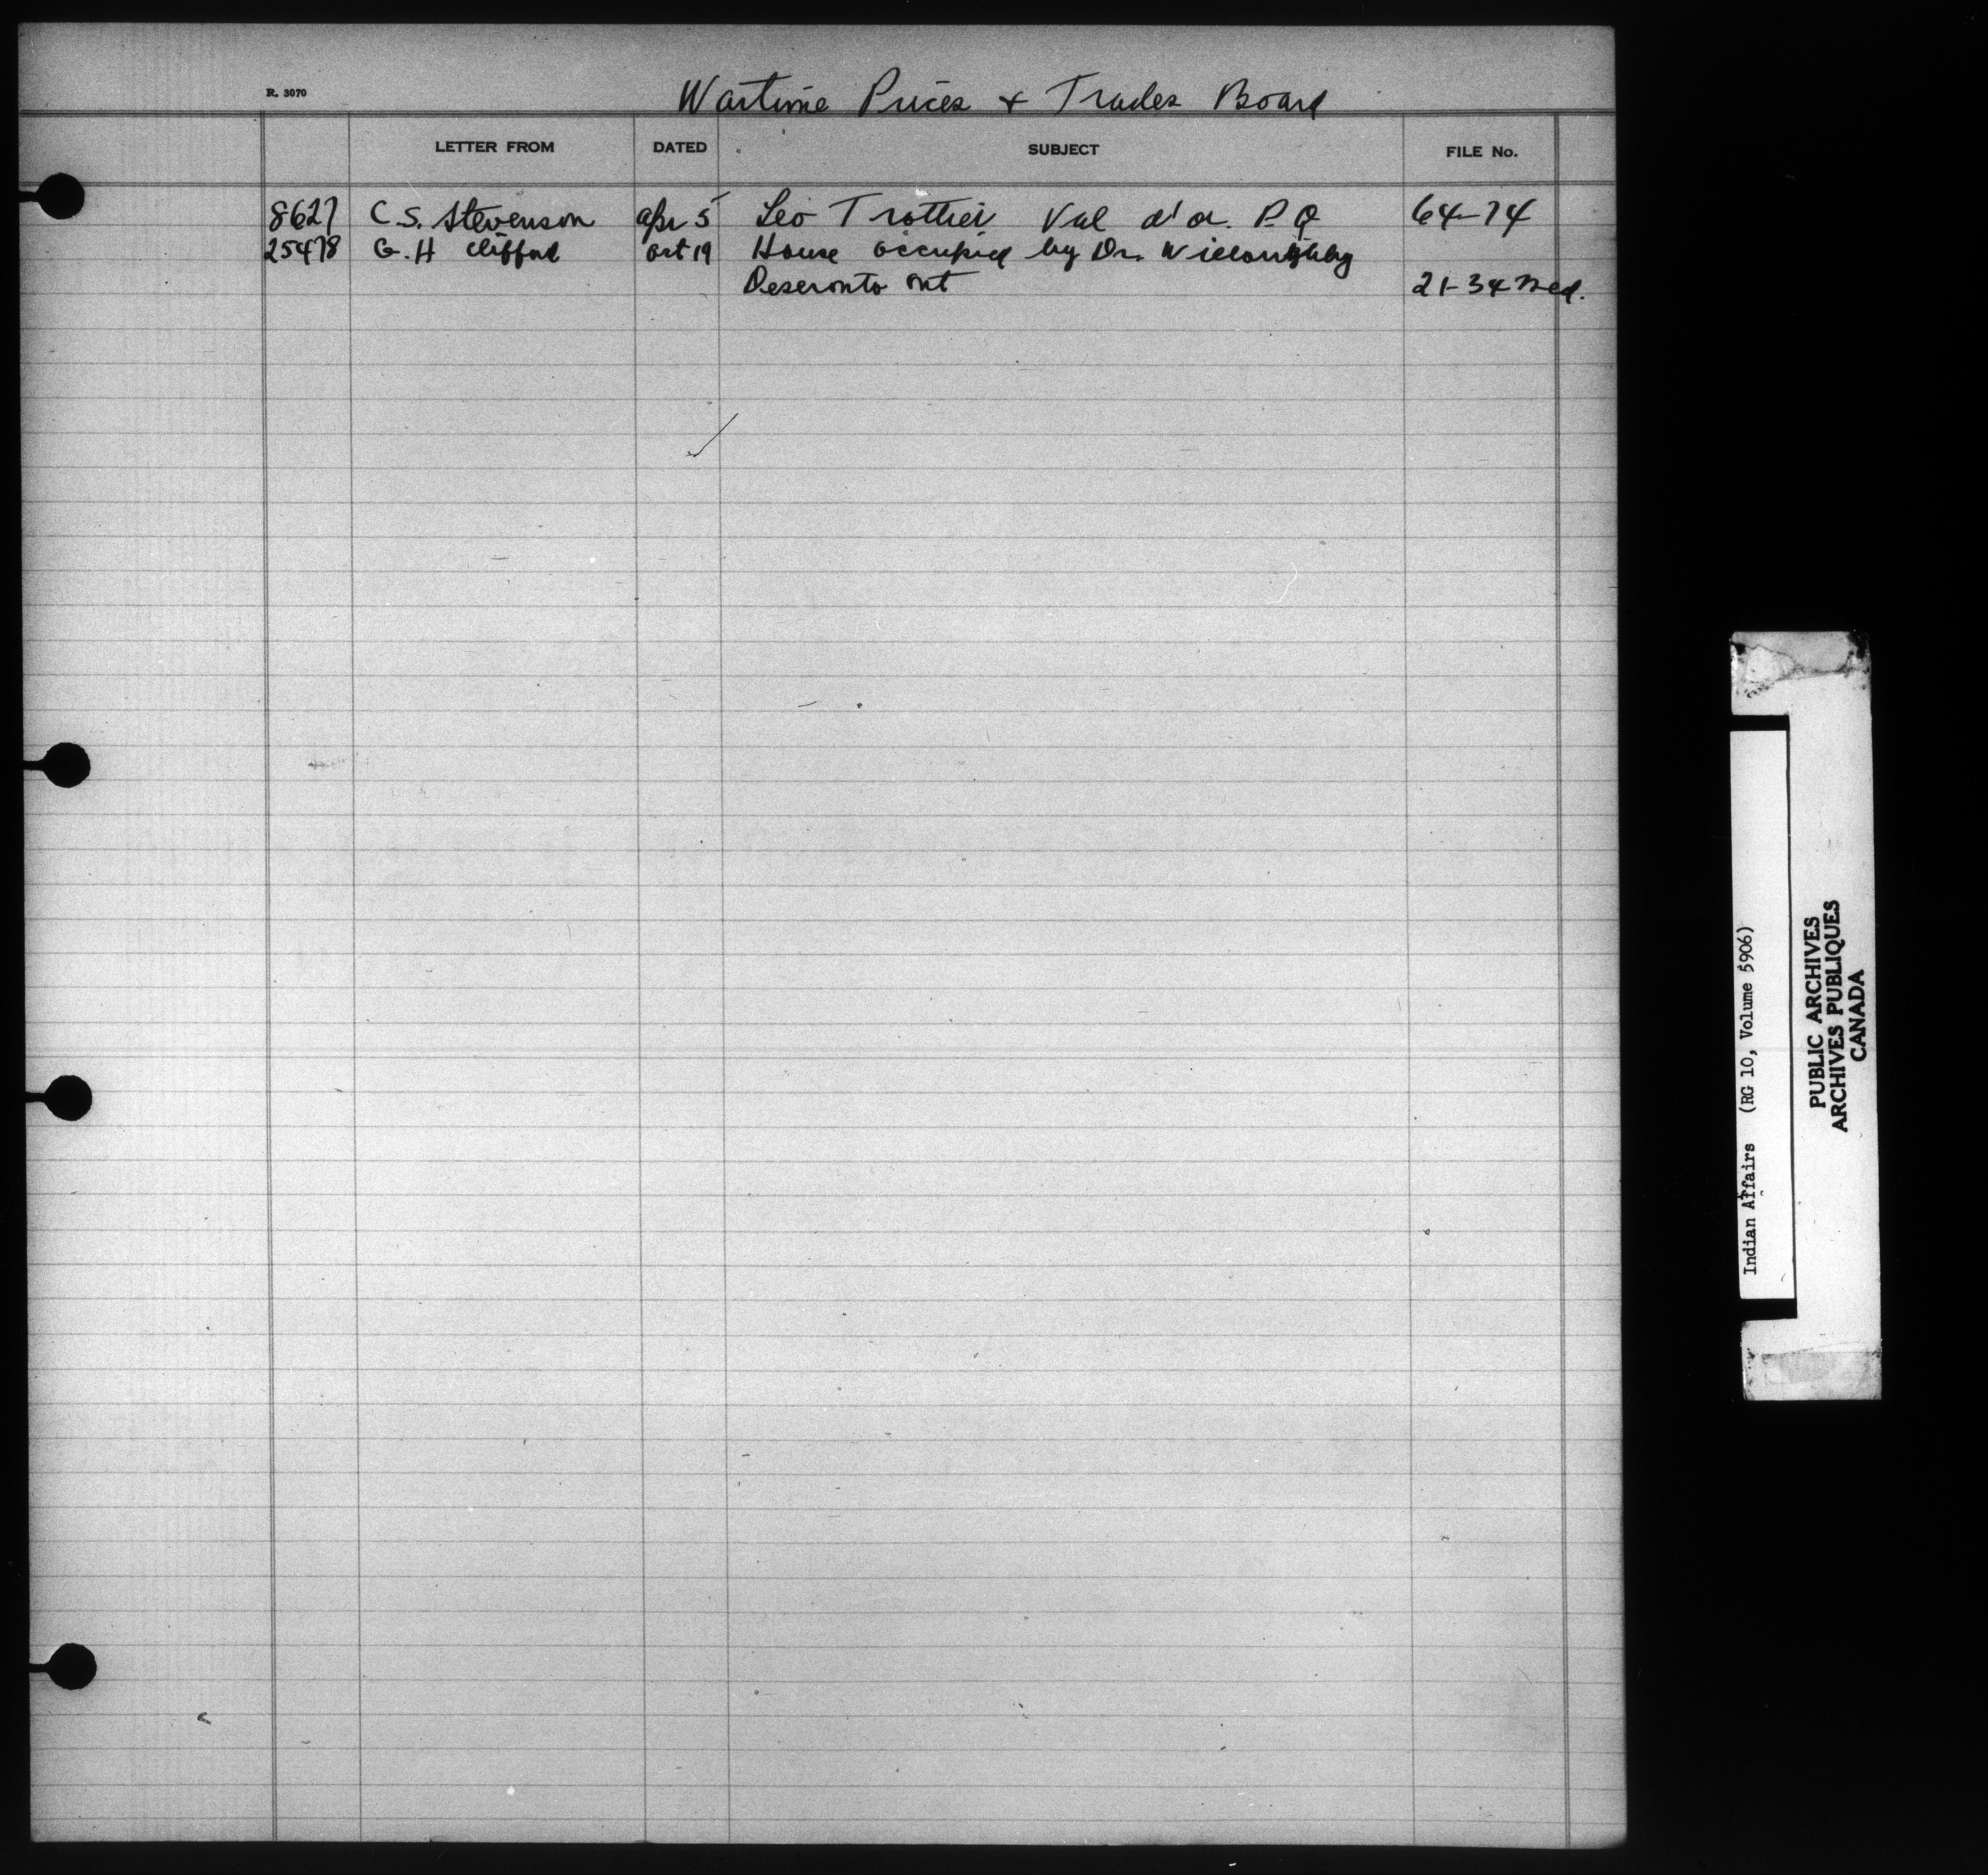 R. 3070
Wartime Prices + Trades Board
LETTER FROM DATED SUBJECT FILE No.
8627 C.S. Stevenson Apr 5 Leo Trottier Val d'or. P.Q 64-74
25478 G.H Clifford Oct 19 House occupied by Dr. Willoughby
Deseronto Ont 21-34 Med.
Indian Affairs (RG 10, Volume 5906)
PUBLIC ARCHIVES
ARCHIVES PUBLIQUES
CANADA